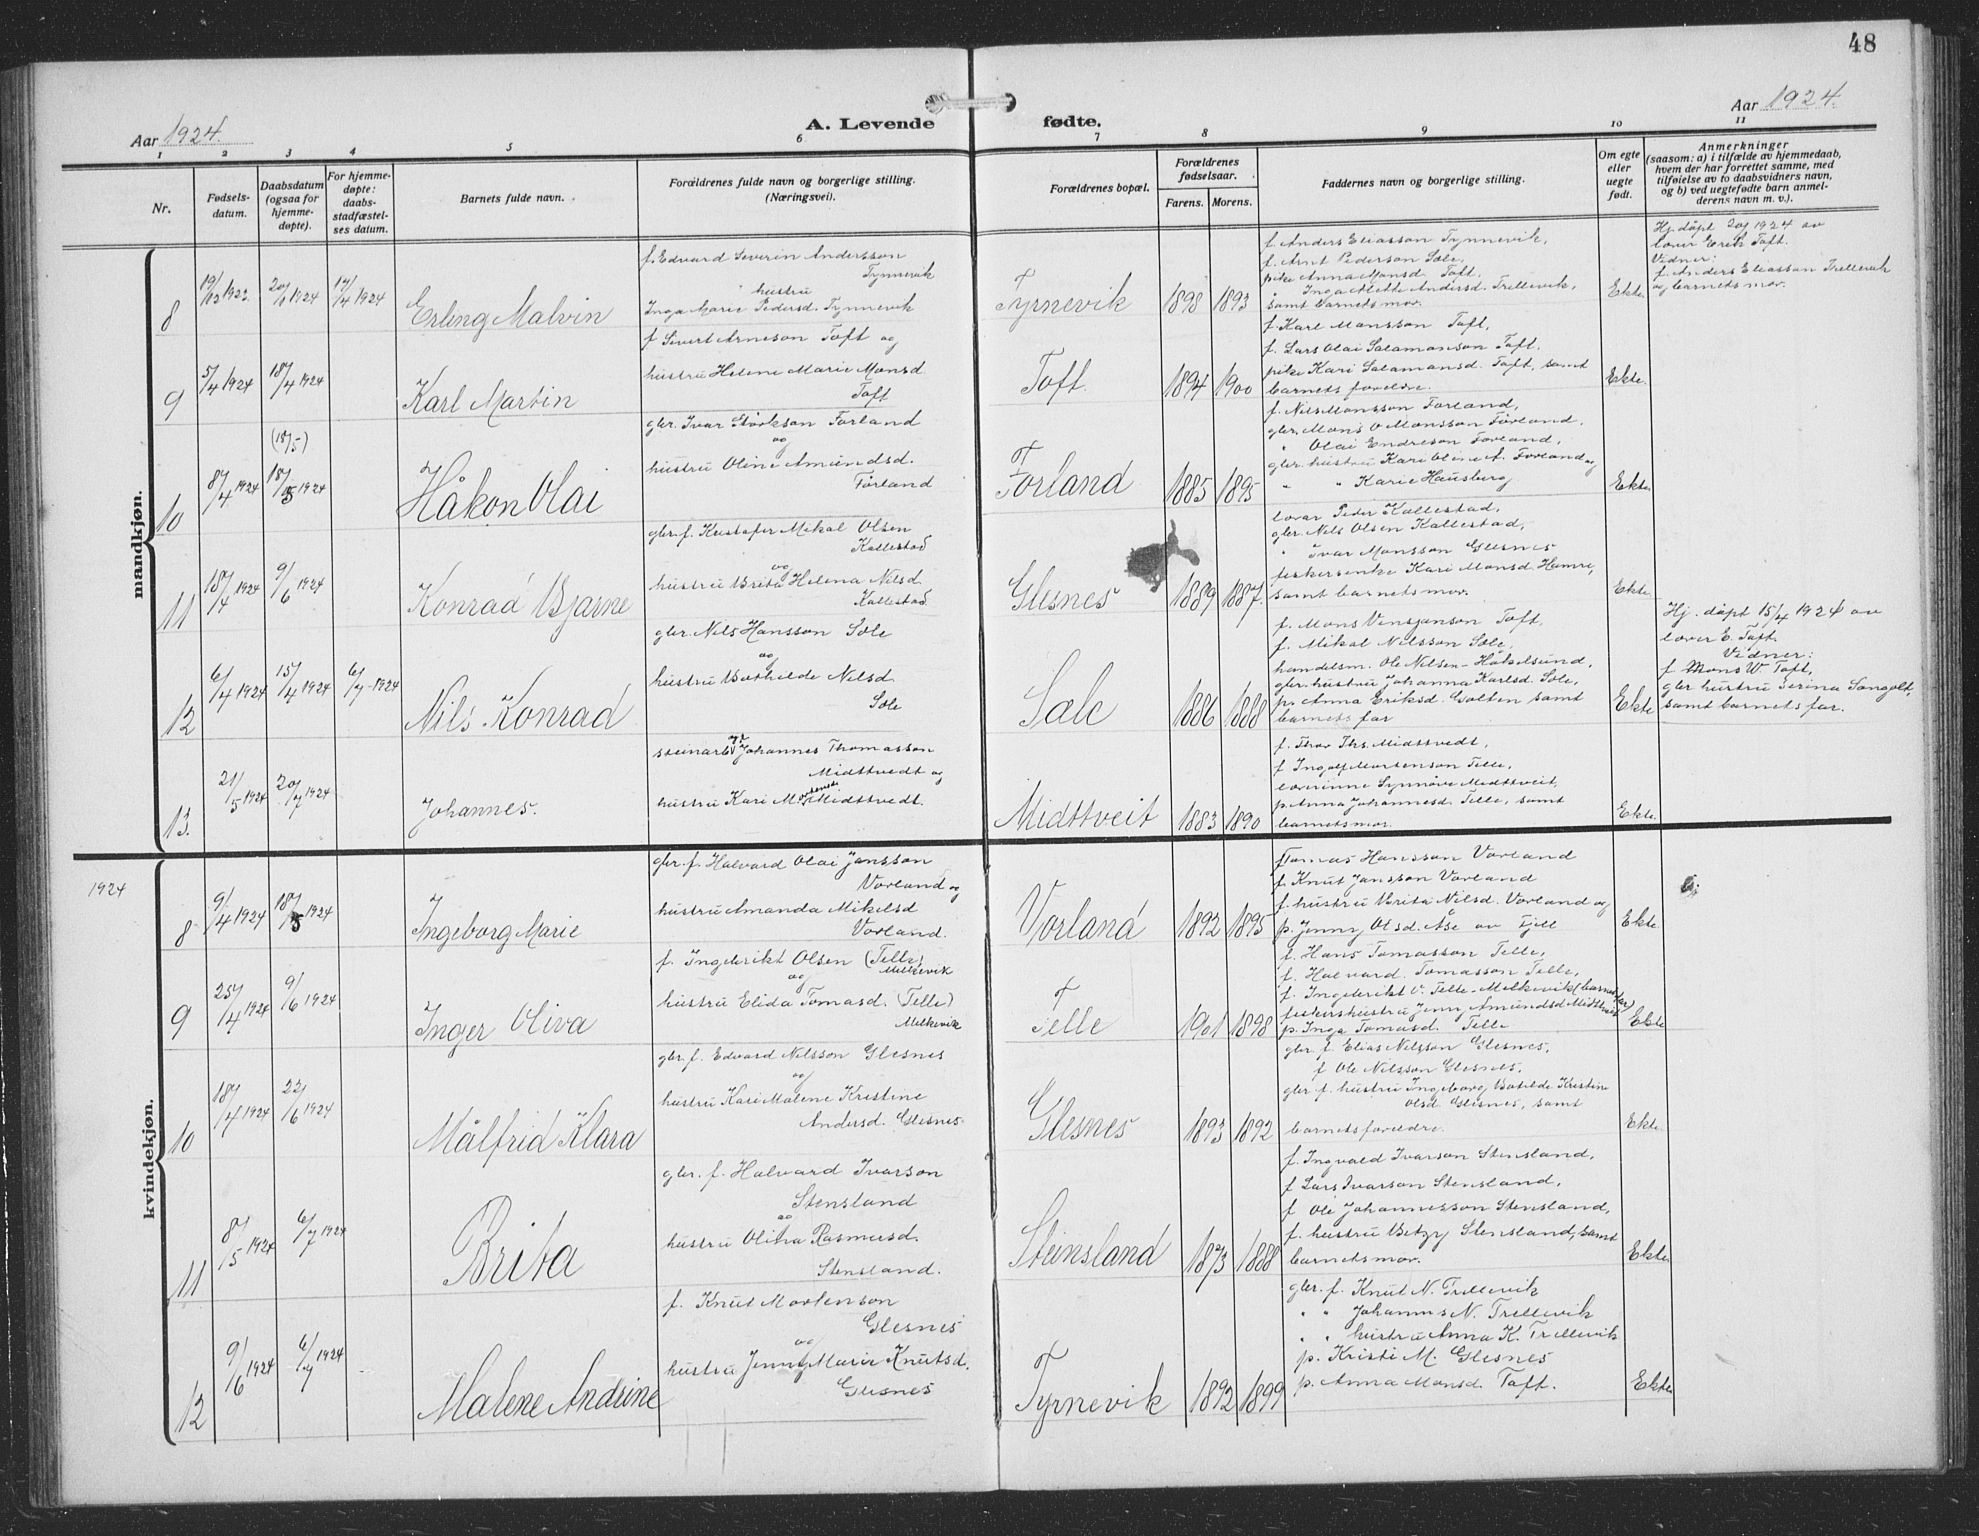 48
Aar 1924.
A. Levende fødte.
Aar 1924.
1 2 3 4 5 6 7 8 9 10 11
Nr.
Fødsels-
datum.
Daabsdatum
(ogsaa for
hjemme-
døpte).
For hjemme-
døpte:
daabs-
stadfæstel-
ses datum.
Barnets fulde navn.
Forældrenes fulde navn og borgerlige stilling.
(Næringsvei).
Forældrenes bopæl.
Forældrenes
fødselsaar.
Farens. Morens.
Faddernes navn og borgerlige stilling.
Om egte
eller
uegte
født.
Anmerkninger
(saasom: a) i tilfælde av hjemmedaab,
hvem der har forrettet samme, med
tilføielse av to daabsvidners navn,
og b) ved uegtefødte barn anmel-
derens navn m. v.).
mandkjøn.
8
19/12 1923
20/1 1924
17/4 1924
Erling Malvin
f. Edvard Severin Andersson
Tynnevik
hustru
Inga Marie Pedersd. Tynnevik
Tyrnevik
1898 1893
f. Anders Eliasson Tynnevik,
f. Arnt Pederson Sæle,
pike Anna Monsd. Toft,
" Inga Alette Andersd. Trellevik,
samt barnets mor.
Ekte.
Hj. døpt 20/1 1924 av
lærer Erik Toft.
Vidner:
f. Anders Eliasson Trellevik
og barnets mor.
9
5/4 1924
18/4 1924
Karl Martin
f Sivert Arneson Toft og
hustru Helene Marie Monsd
Toft
Toft.
1894 1900
f. Karl Monsson Toft,
f. Lars Olai Salamonson Toft,
pike Kari Salamonsd. Toft, samt
barnets foreldre.
Ekte.
10
8/4 1924
(18/5)
18/5 1924
Håkon Olai
gbr. Ivar Størkson Forland
og
hustru Oline Amundsd.
Førland
Forland
1885 1895
f. Nils Monsson Forland,
gbr. Mons O Monsson Førland,
" Olai Endreson Førland,
gbr. hustru Kari Oline A. Førland og
" " Karie Hausberg
Ekte
11
18/4 1924
9/6 1924
Konrad Bjarne
gbr. f. Kristofer Mikal Olsen
Kallestad
og
hustru Brita Helena Nilsd
Kallestad
Glesnes
1889 1887.
lærar Peder Kallestad,
gbr. Nils Olsen Kallestad,
" Ivar Monsson Glesnes
fiskerenke Kari Monsd. Hamre,
samt barnets mor.
Ekte
12
6/4 1924
15/4 1924
6/7 1924
Nils Konrad
gbr. Nils Hansson Sæle
og
hustru Bothilde Nilsd
Sæle
Sæle
1886 1888
f. Mons Vinsjanson Toft,
f. Mikal Nilsson Sæle,
handelsm. Ole Nilsen-Håkelsund,
gbr. hustru Johanna Karlsd. Sæle,
p. Anna Eriksd. Golten samt
barnets far
Ekte
Hj. døpt 15/4 1924 av
lærer E. Toft.
Vidner:
f Mons W. Toft,
gbr hustru Serina Sangolt,
samt barnets far.
13.
21/5 1924
20/7 1924
Johannes.
steinarb. Johannes Thomasson
Midttvedt og
hustru Kari Mortensd Midttvedt.
Midttveit
1883 1890
f. Thor Ths. Midttvedt,
f Ingolf Mortenson Telle,
lærerinne Synnøve Midttveit,
p. Anna Johannesd. Telle, samt
barnets mor.
Ekte.
1924
kvindekjøn.
8
9/4 1924
18/5 1924
Ingeborg Marie
gbr. f. Halvard Olai Jansson
Vorland og
hustru Amanda Mikelsd
Vorland.
Vorland
1892 1895
Tomas Hansson Vorland
f. Knut Jansson Vorland
f. hustru Brita Nilsd. Vorland og
p. Jenny Olsd. Åse av Fjell
Ekte
9
25/4 1924
9/6 1924
Inger Oliva
f. Ingebrikt Olsen (Telle)
Milkevik
og
hustru Elida Tomasd. (Telle)
Milkevik
Telle
1901 1898
f. Hans Tomasson Telle,
f. Halvard Tomasson Telle,
f. Ingebrikt O. Telle-Melkevik (barnets far)
fiskershustru Jenny Amundsd Midttveit
p. Inga Tomasd. Telle
Ekte
10
18/4 1924
22/6 1924
Målfrid Klara
gbr. f. Edvard Nilsson Glesnes
og
hustru Kari Malene Kristine
Andersd. Glesnes.
Glesnes
1893 1892
gbr. f. Elias Nilsson Glesnes,
f Ole Nilsson Glesnes,
gbr. f. hustru Ingeborg Botilde Kristine
Olsd. Glesnes, samt
barnets foreldre.
Ekte.
11
8/5 1924
6/7 1924
Brita
gbr. f. Halvard Ivarson
Stensland
og
hustru Olina Rasmusd.
Stensland.
Steinsland
1873 1888
f. Ingvald Ivarson Stensland,
f Lars Ivarson Stensland,
f Ole Johannesson Stensland,
f. hustru Betzy Stensland, samt
barnets mor.
Ekte.
12
9/6 1924
6/7 1924
Malene Andrine
f. Knut Mortenson
Glesnes
og
hustru Jenny Marie Knutsd.
Glesnes
Tyrnevik
1892 1899
gbr. f. Knut N. Trellevik
" " Johannes N. Trellevik
" " hustru Anna K. Trellevik
p. Kristi M. Glesnes
p. Anna Monsd. Toft.
Ekte